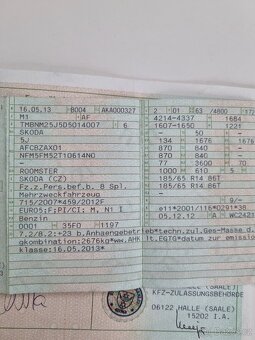 16.05.13 B004 AKA000327
M1 AF
TMBNM25J5D5014007 6
SKODA
5J
AFCBZAX01
NFM5FM52T10614N0
ROOMSTER
SKODA (CZ)
Fz.z.Pers.bef.b. 8 Spl.
Mehrzweckfahrzeug
715/2007*459/2012F
EURO5;F;PI/CI; M, N1 I
Benzin
0001 35F0 1197
2 01 63 /4800 172
4214-4337 1684
1607-1650 1221
- 50 -
134 1676 1676
870 840 -
870 840 -
77 3600 70
1000 610 5
185/65 R14 86T
185/65 R14 86T
- 9/-
e11*2001/116*0291*38
05.12.12 A WC2421
7.2/8.2:+23 b.Anhaengebetrieb*techn.zul.Ges-Masse d.
gkombination:2676kg*ww.AHK lt.EGTG*datum zur emission
klasse:16.05.2013*
HALLE (SAALE)
KFZ-ZULASSUNGSBEHÖRDE
06112 HALLE (SAALE)
15202 I.A.